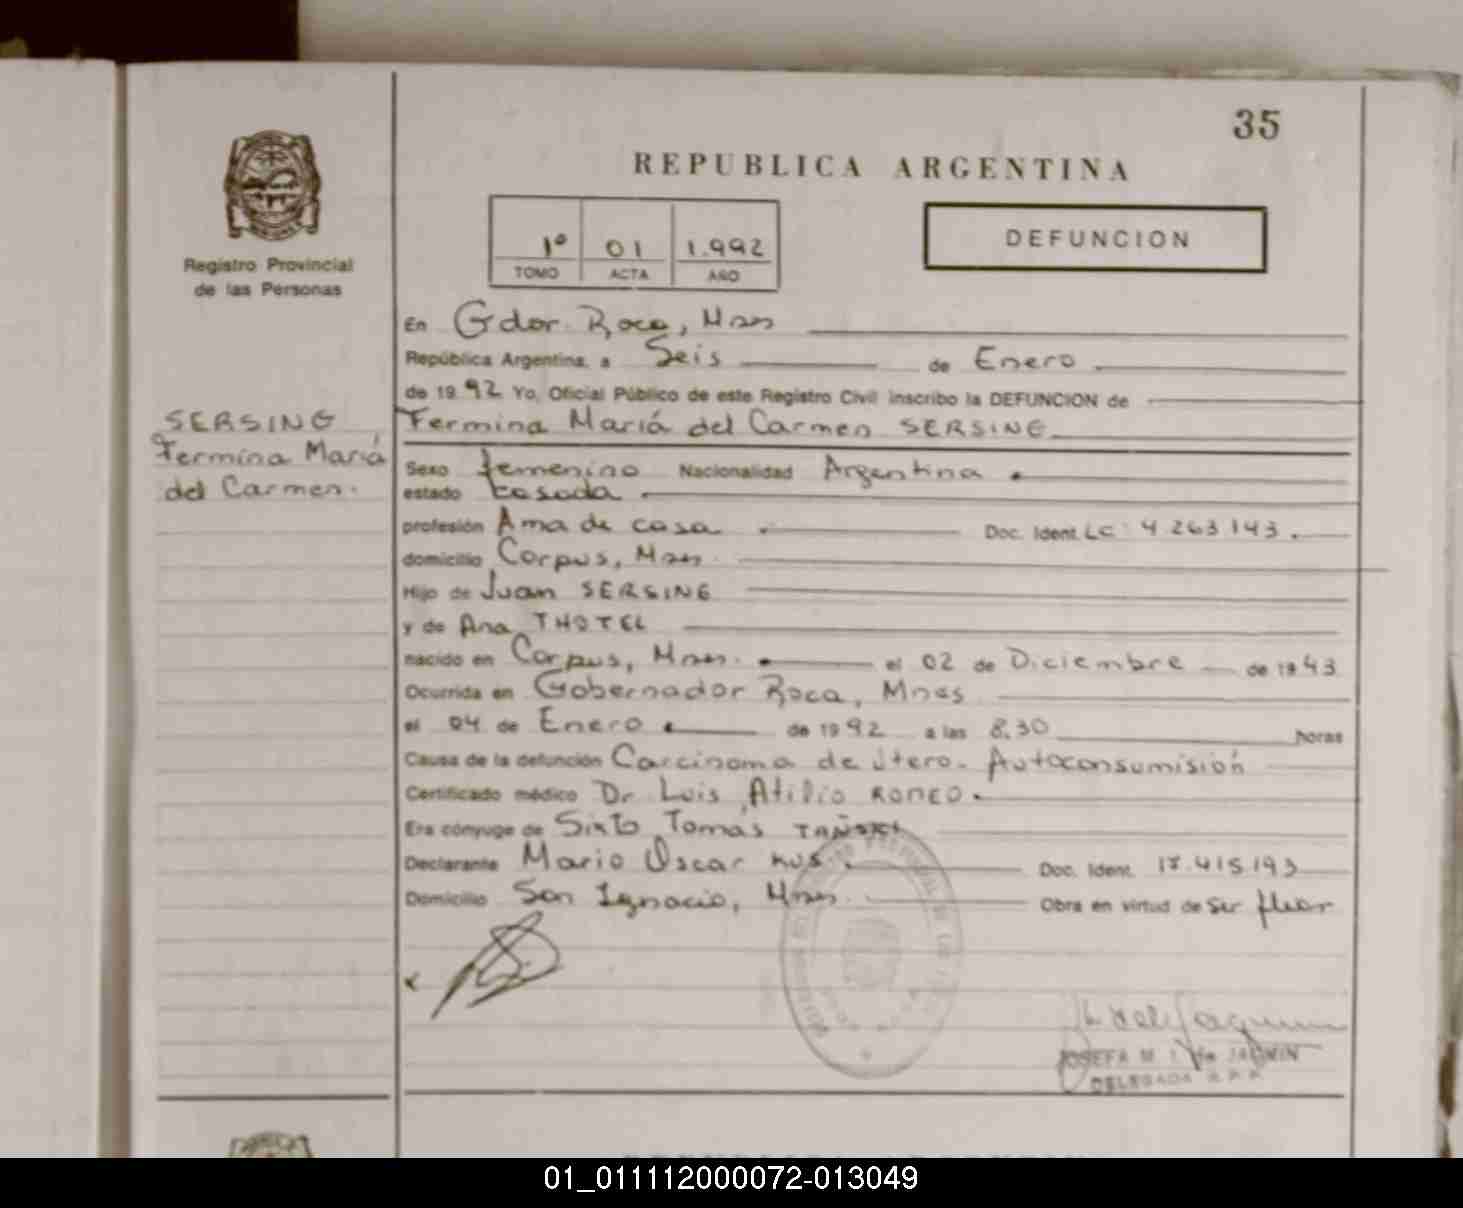 35
REPUBLICA ARGENTINA
Registro Provincial
de las Personas
1º 01 1.992
TOMO ACTA AÑO
DEFUNCION
En Gdor. Roca, Mnes
República Argentina, a Seis de Enero
de 1992 Yo, Oficial Público de este Registro Civil inscribo la DEFUNCION de
SERSING
Fermina Mariá
del Carmen.
Fermina Mariá del Carmen SERSING
Sexo femenino Nacionalidad Argentina.
estado casada.
profesión Ama de casa. Doc. Ident. LC: 4.263.143.
domicilio Corpus, Mnes.
Hijo de Juan SERSING
y de Ana THOTEL
nacido en Corpus, Mnes. el 02 de Diciembre de 1943
Ocurrida en Gobernador Roca, Mnes
el 04 de Enero. de 1992 a las 8,30 horas
Causa de la defunción Carcinoma de Utero. Autoconsumisión
Certificado médico Dr. Luis Atilio ROMEO.
Era cónyuge de Sixto Tomás
Declarante Mario Oscar Doc. Ident. 17.415.193
Domicilio San Ignacio, Mnes. Obra en virtud de ser
JOSEFA M.
DELEGADA R.P.P.
01_011112000072-013049